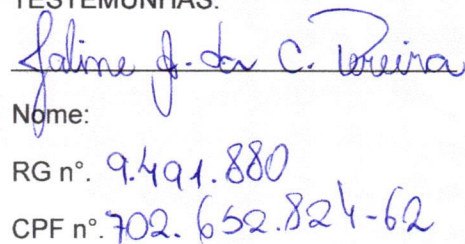 TESTEMUNHAS:
Jaline J. da C. Pereira
Nome:
RG n°. 9.491.880
CPF n°. 702.652.824-62